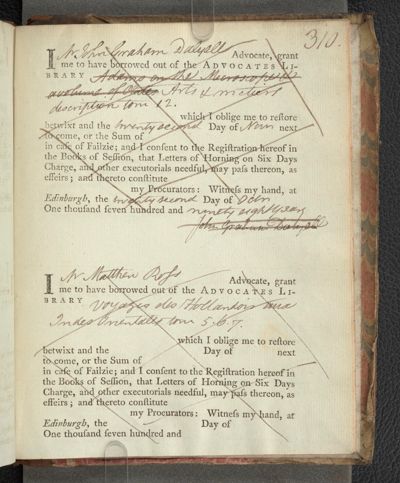 310.
I Mr John Graham Dalyell Advocate, grant
me to have borrowed out of the ADVOCATES LI-
BRARY Adams on the Microscope &
a volume of Arts & metiers
description tom 12.
which I oblige me to reſtore
betwixt and the twenty second Day of Novr next
to come, or the Sum of
in caſe of Failzie; and I conſent to the Regiſtration hereof in
the Books of Seſſion, that Letters of Horning on Six Days
Charge, and other executorials needful, may paſs thereon, as
effeirs; and thereto conſtitute
my Procurators: Witneſs my hand, at
Edinburgh, the twenty second Day of Octr
One thouſand ſeven hundred and ninety eight years
John Graham Dalyell
I Mr Matthew Roſs Advocate, grant
me to have borrowed out of the ADVOCATES LI-
BRARY Voyages des Hollandois aux
Indes Orientales tom 5. 6. 7.
which I oblige me to reſtore
betwixt and the Day of next
to come, or the Sum of
in caſe of Failzie; and I conſent to the Regiſtration hereof in
the Books of Seſſion, that Letters of Horning on Six Days
Charge, and other executorials needful, may paſs thereon, as
effeirs; and thereto conſtitute
my Procurators: Witneſs my hand, at
Edinburgh, the Day of
One thouſand ſeven hundred and